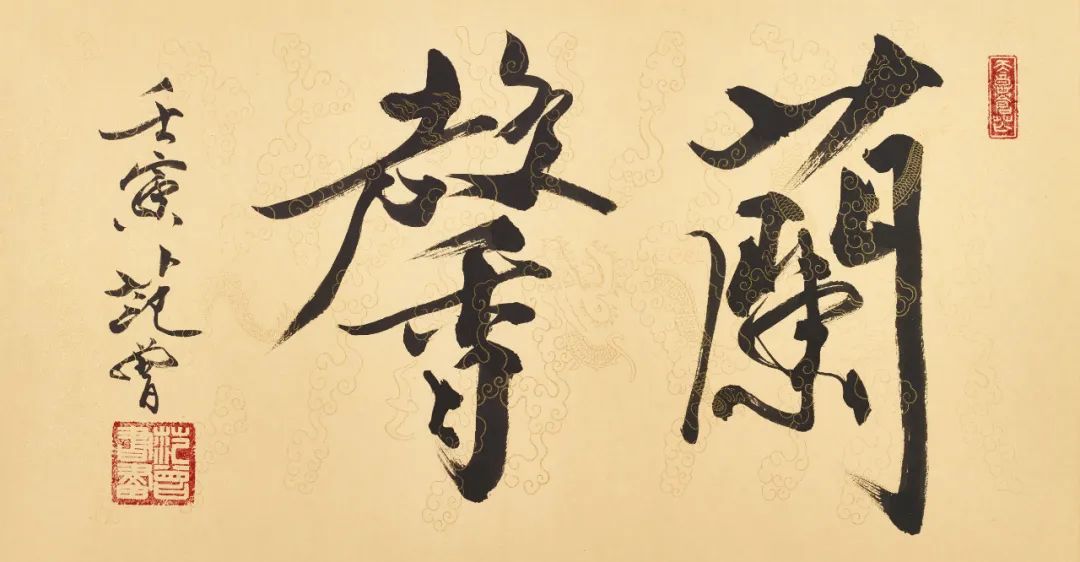 蘭馨
壬寅 范曾
范曾
書畫